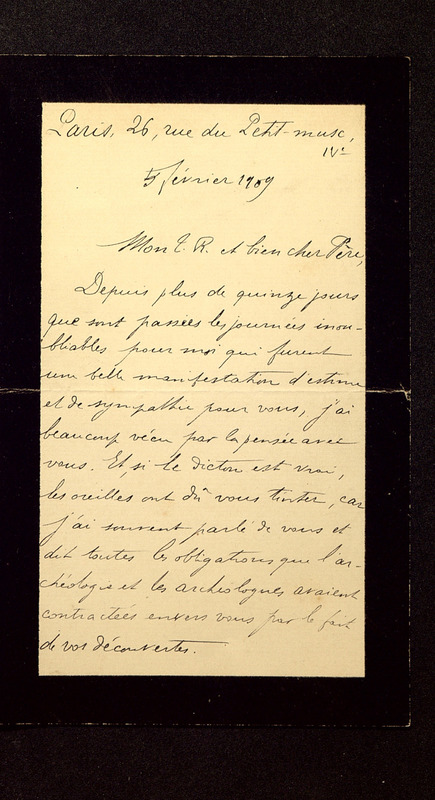 Paris, 26, rue du Petit-musc,
IVe
5 février 1909
Mon T. R. et bien cher Père,
Depuis plus de quinze jours
que sont passées les journées inou-
bliables pour moi qui furent
une belle manifestation d'estime
et de sympathie pour vous, j'ai
beaucoup vécu par la pensée avec
vous. Et, si le dicton est vrai,
les oreilles ont dû vous tinter, car
j'ai souvent parlé de vous et
dit toutes les obligations que l'ar-
chéologie et les archéologues avaient
contractées envers vous par le fait
de vos découvertes.